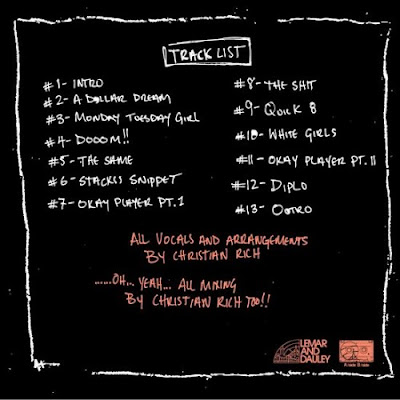 TRACK LIST
#1- INTRO
#2- A DOLLAR DREAM
#3- MONDAY TUESDAY GIRL
#4- DOOOM!!
#5- THE SAME
#6- STACKS SNIPPET
#7- OKAY PLAYER PT. I
#8- THE SHIT
#9- QUICK 8
#10- WHITE GIRLS
#11- OKAY PLAYER PT. II
#12- DIPLO
#13- OOTRO
ALL VOCALS AND ARRANGEMENTS
BY CHRISTIAN RICH
......OH... YEAH... ALL MIXING
BY CHRISTIAN RICH TOO!!
LEMAR
AND
DAULEY